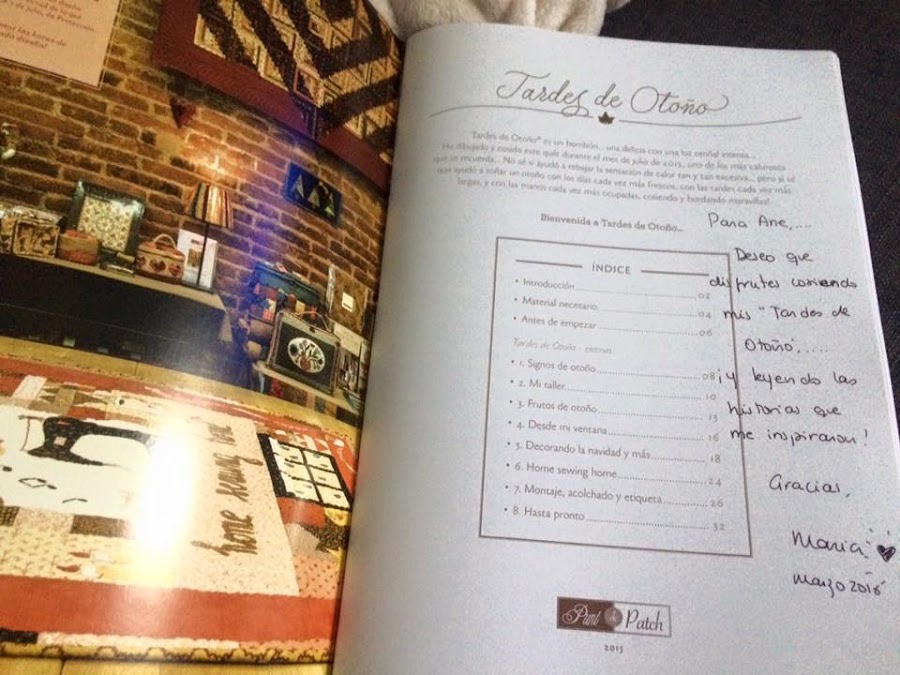 1 de Julio, de Protección
Tardes de Otoño
Tardes de Otoño® es un bombón... una delicia con una luz otoñal intensa...
He dibujado y cosido este quilt durante el mes de julio de 2015, uno de los más calurosos
que se recuerda... No sé si ayudó a rebajar la sensación de calor tan y tan excesiva... pero si sé
que ayudó a soñar un otoño con los días cada vez más frescos, con las tardes cada vez más
largas, y con las manos cada vez más ocupadas, cosiendo y bordando maravillas!
Bienvenida a Tardes de Otoño...
ÍNDICE
• Introducción 02
• Material necesario 04
• Antes de empezar 06
Tardes de Otoño -
• 1. Signos de otoño 08
• 2. Mi taller 10
• 3. Frutos de otoño 13
• 4. Desde mi ventana 16
• 5. Decorando la navidad y más 18
• 6. Home sewing home 24
• 7. Montaje, acolchado y etiqueta 26
• 8. Hasta pronto 32
Para Ane,....
Deseo que
disfrutes cosiendo
mis "Tardes de
Otoño",....
¡y leyendo las
historias que
me inspiraron!
Gracias,
Maria
marzo 2016
Punt de Patch
2015
home sewing home